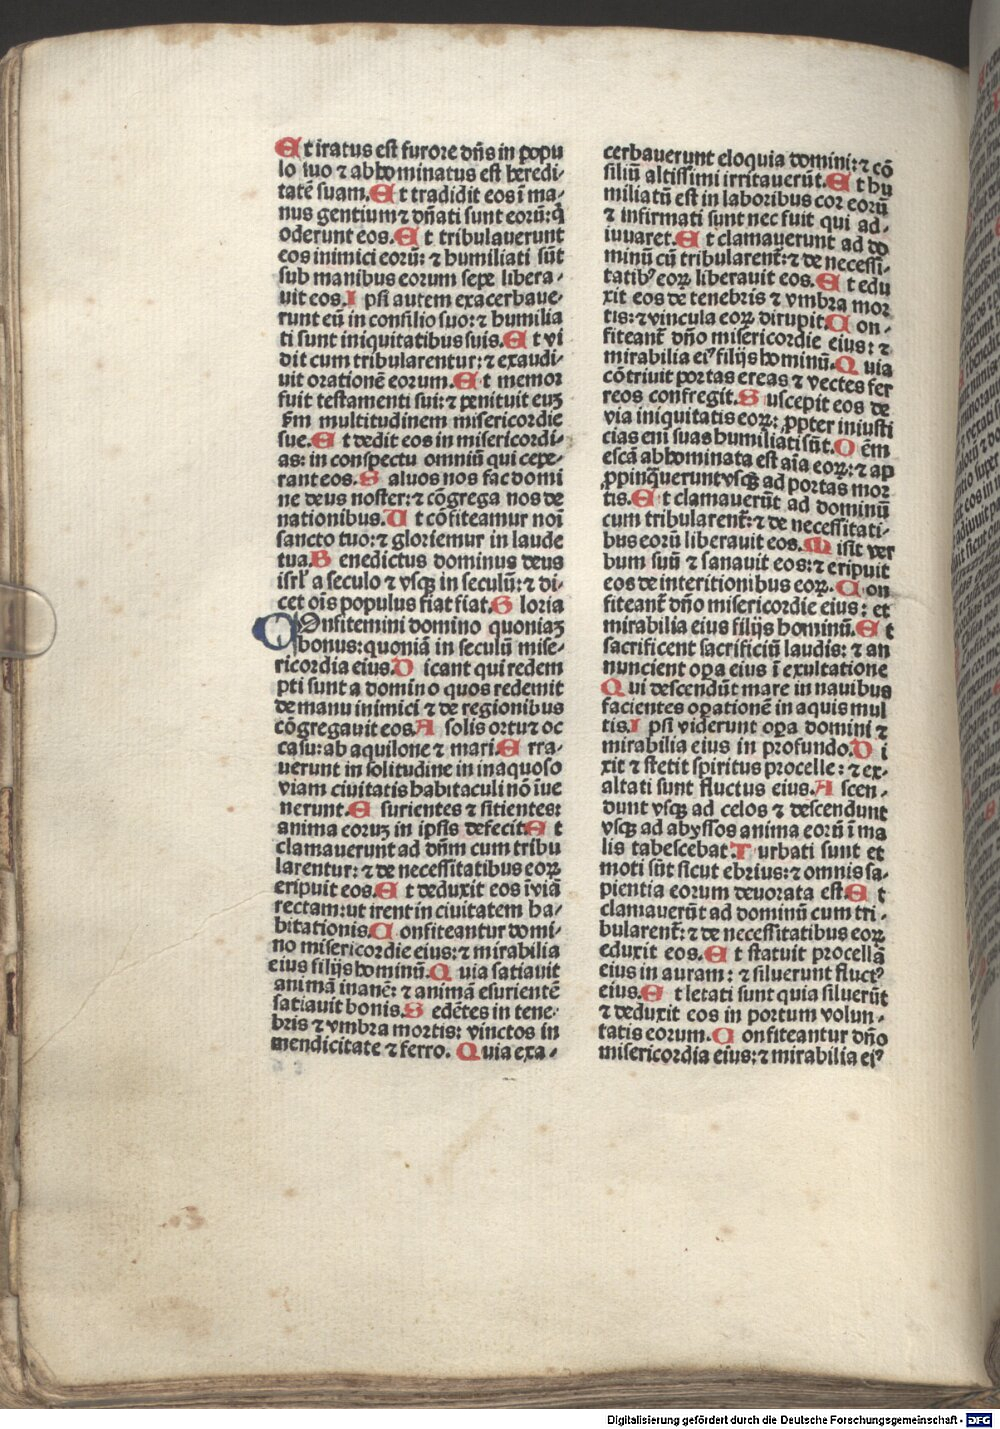 Et iratus est furore dñs in popu
lo suo ⁊ abhominatus est heredi⸗
tatē suam. Et tradidit eos ī ma⸗
nus gentium ⁊ dñati sunt eorū: q̇
oderunt eos. Et tribulauerunt
eos inimici eorū: ⁊ humiliati sūt
sub manibus eorum sepe libera⸗
uit eos. Ipsi autem exacerbaue⸗
runt eū in consilio suo: ⁊ humilia
ti sunt iniquitatibus suis. Et vi
dit cum tribularentur: ⁊ exaudi⸗
uit orationē eorum. Et memor
fuit testamenti sui: ⁊ penituit euꝫ
ẜm multitudinem misericordie
sue. Et dedit eos in misericordi⸗
as: in conspectu omniū qui cepe⸗
rant eos. Saluos nos fac domi
ne deus noster: ⁊ cōgrega nos de
nationibus. Ut cōfiteamur noī
sancto tuo: ⁊ gloriemur in laude
tua Benedictus dominus deus
isrl' a seculo ⁊ vsqꝫ in seculū: ⁊ di⸗
cet oīs populus fiat fiat. Gloria
COnfitemini domino quoniaꝫ
bonus: quoniā in seculū mise⸗
ricordia eius. Dicant qui redem
pti sunt a domino quos redemit
de manu inimici ⁊ de regionibus
cōgregauit eos. A solis ortu ⁊ oc
casu: ab aquilone ⁊ mari. Erra⸗
uerunt in solitudine in inaquoso
viam ciuitatis habitaculi nō īue
nerunt. Esurientes ⁊ sitientes:
anima eoruꝫ in ipsis defecit. Et
clamauerunt ad dñm cum tribu
larentur: ⁊ de necessitatibus eoꝝ
eripuit eos. Et deduxit eos ī viā
rectam: ut irent in ciuitatem ha⸗
bitationis. Confiteantur domi⸗
no misericordie eius: ⁊ mirabilia
eius filijs hominū. Quia satiauit
animā inanē: ⁊ animā esurientē
satiauit bonis. Sedētes in tene⸗
bris ⁊ vmbra mortis: vinctos in
mendicitate ⁊ ferro. Quia exa⸗
cerbauerunt eloquia domini: ⁊ cō
siliū altissimi irritauerūt. Et hu
miliatū est in laboribus cor eorū
⁊ infirmati sunt nec fuit qui ad⸗
iuuaret. Et clamauerunt ad do
minū cū tribularent᷑: ⁊ de necessi⸗
tatibꝰ eoꝝ liberauit eos. Et edu
xit eos de tenebris ⁊ vmbra mor
tis: ⁊ vincula eoꝝ dirupit. Con⸗
fiteant᷑ dño misericordie eius: ⁊
mirabilia eiꝰ filijs hominū. Quia
cōtriuit portas ereas ⁊ vectes fer
reos confregit. Suscepit eos de
via iniquitatis eoꝝ: ꝓpter iniusti
cias eni suas humiliati sūt. Oēm
escā abhominata est aīa eoꝝ: ⁊ ap
ꝓpinq̄uerunt vsqꝫ ad portas mor
tis. Et clamauerūt ad dominū
cum tribularent᷑: ⁊ de necessitati⸗
bus eorū liberauit eos. Misit ver
bum suū ⁊ sanauit eos: ⁊ eripuit
eos de interitionibus eoꝝ. Con
fiteant᷑ dño misericordie eius: et
mirabilia eius filijs hominū. Et
sacrificent sacrificiū laudis: ⁊ an
nuncient oꝑa eius ī exultatione
Qui descendūt mare in nauibus
facientes oꝑationē in aquis mul
tis. Ipsi viderunt oꝑa domini ⁊
mirabilia eius in profundo. Di
xit ⁊ stetit spiritus procelle: ⁊ ex⸗
altati sunt fluctus eius. Ascen⸗
dunt vsqꝫ ad celos ⁊ descendunt
vsqꝫ ad abyssos anima eorū ī ma
lis tabescebat. Turbati sunt et
moti sūt sicut ebrius: ⁊ omnis sa⸗
pientia eorum deuorata est. Et
clamauerūt ad dominū cum tri⸗
bularent᷑: ⁊ de necessitatibus eoꝝ
eduxit eos. Et statuit procellā
eius in auram: ⁊ siluerunt fluctꝰ
eius. Et letati sunt quia siluerūt
⁊ deduxit eos in portum volun⸗
tatis eorum. Confiteantur dño
misericordia eius: ⁊ mirabilia eiꝰ
Digitalisierung gefördert durch die Deutsche Forschungsgemeinschaft - DFG